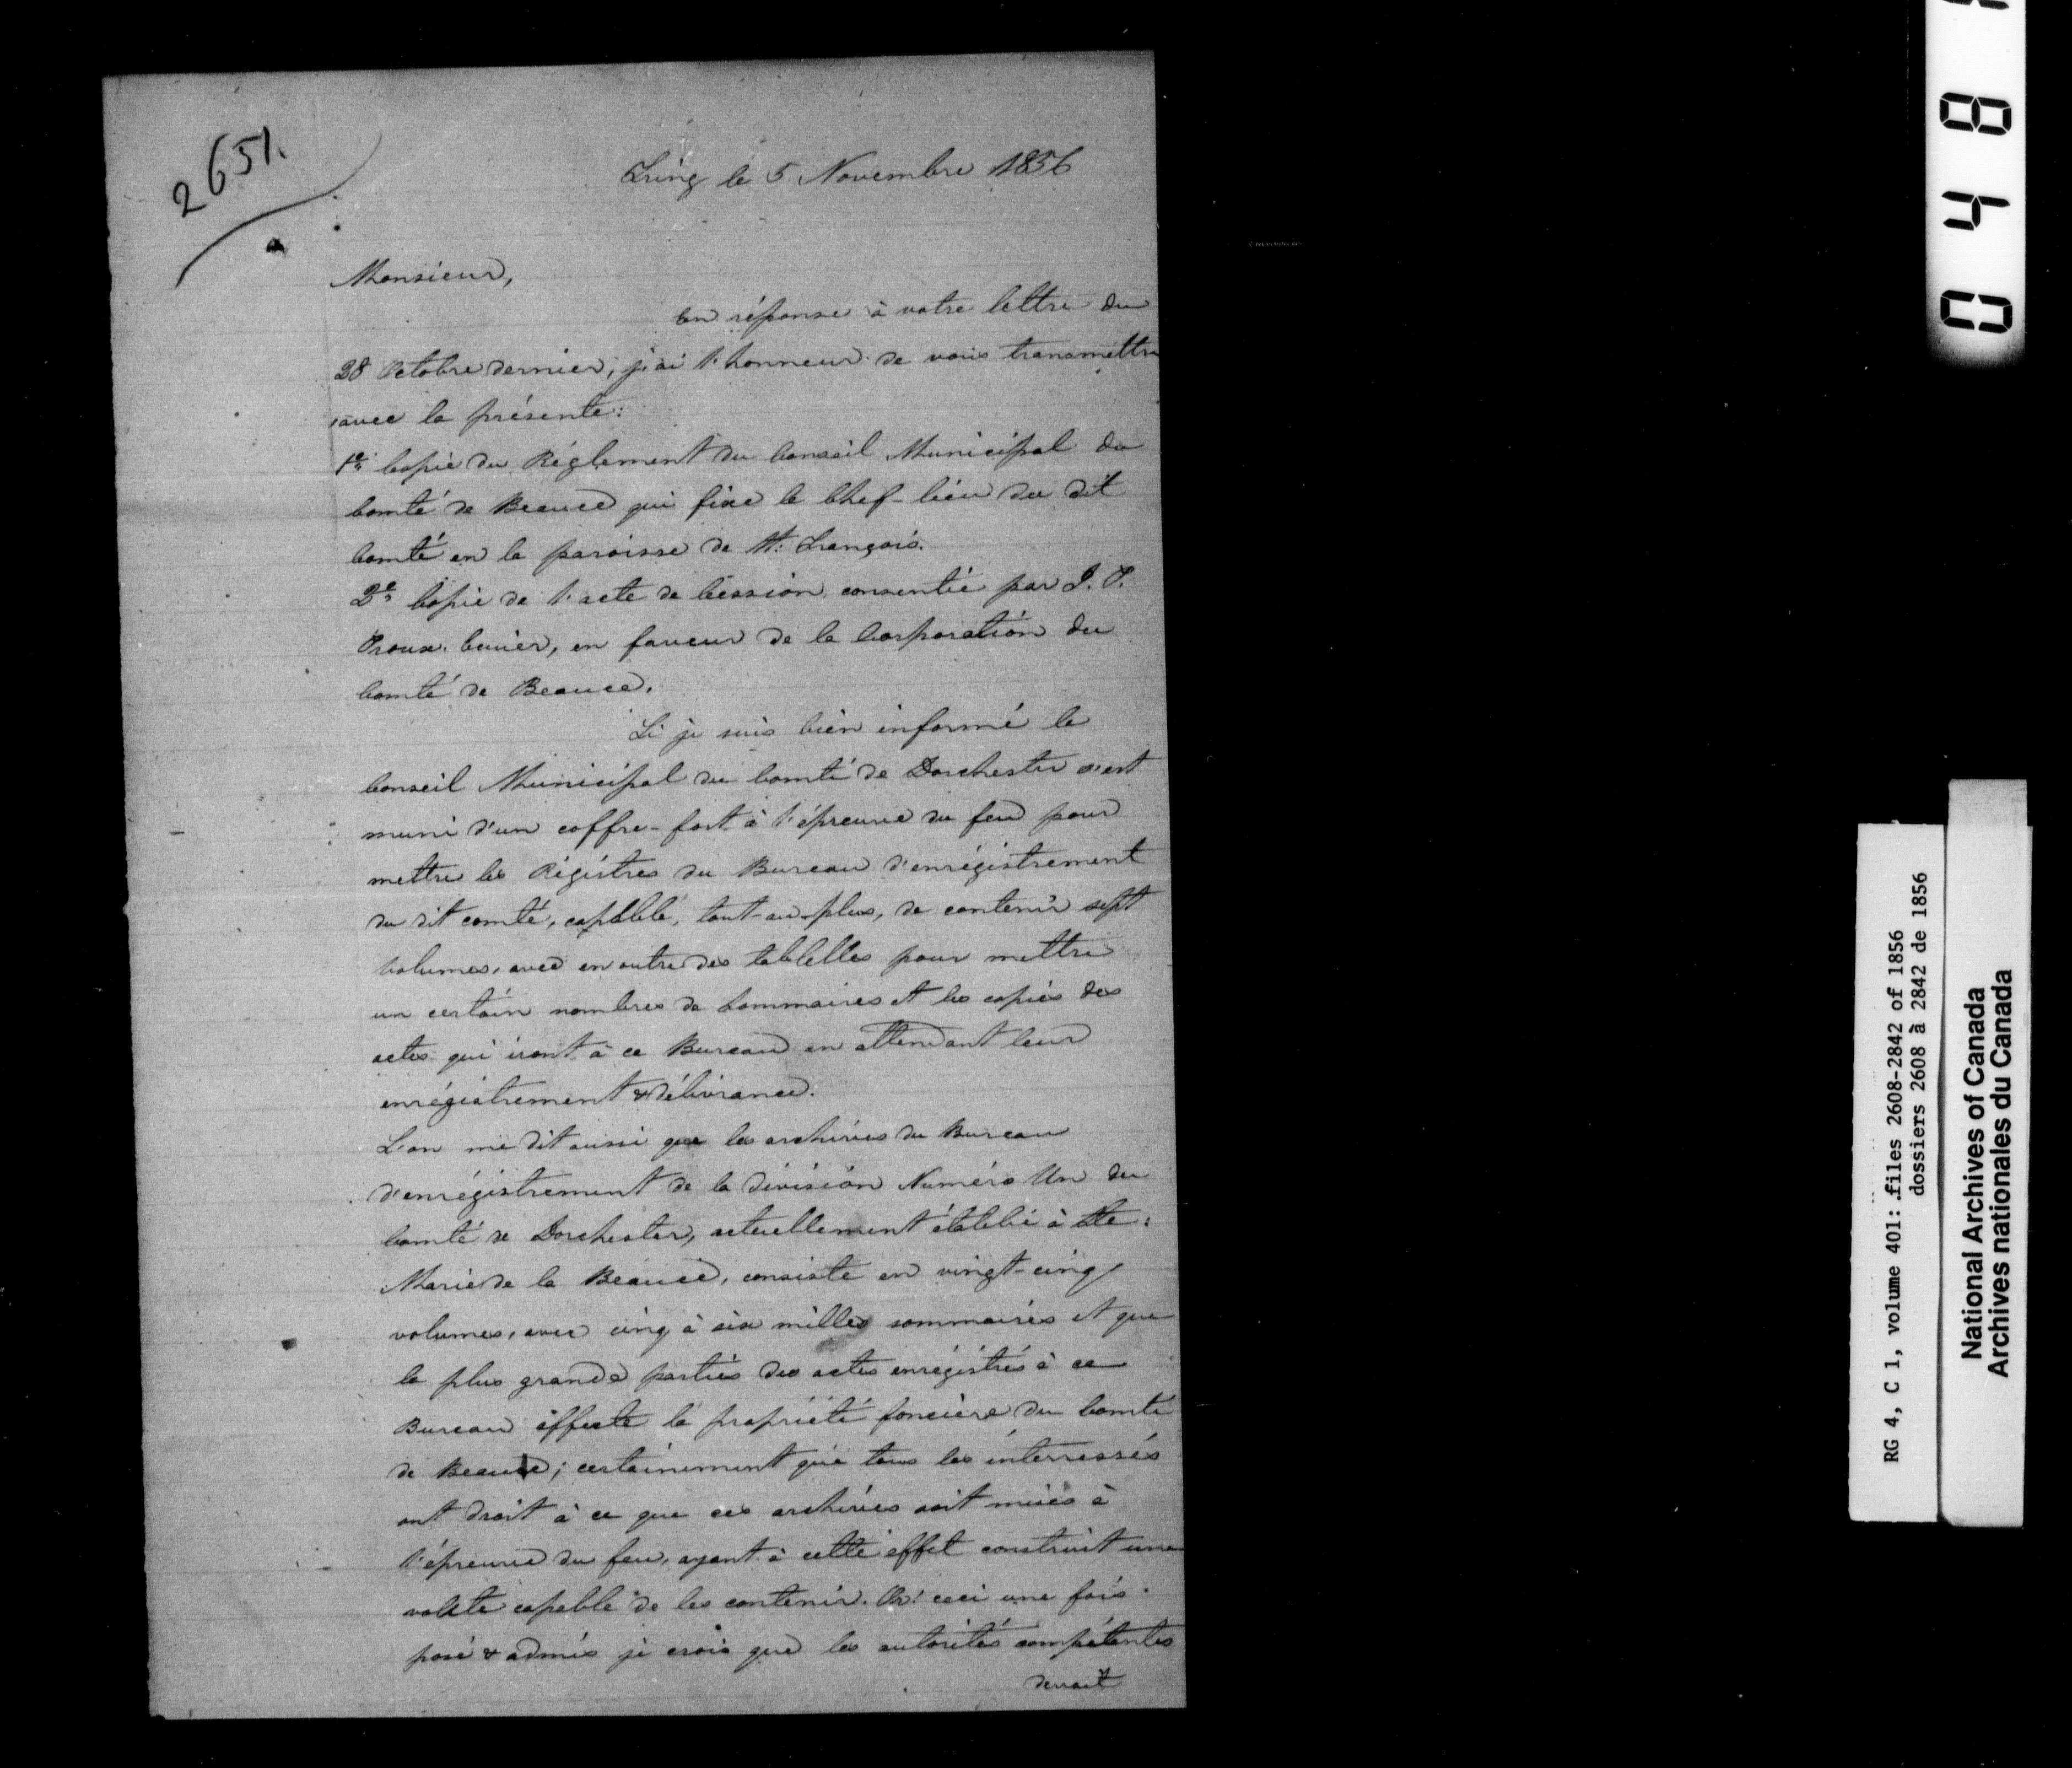 2651.
Tring le 5 Novembre 1856
Monsieur,
En réponse à votre lettre du
28 Octobre dernier, j'ai l'honneur de vous transmettre
avec la présente:
1e: Copie du Réglement du Conseil Municipal du
Comté de Beauce qui fixe le Chef-lieu du dit
Comté en la paroisse de St: François.
2e: Copie de l'acte de Cession consentie par J. P.
Proulx, Curier, en faveur de la Corporation du
Comté de Beauce.
Si je suis bien informé le
Conseil Municipal du Comté de Dorchester s'est
muni d'un coffre-fort à l'épreuve du feu pour
mettre les Régistres du Bureau d'enrégistrement
du dit comté, capable, tout-au-plus, de contenir sept
volumes, avec en outre des tablelles pour mettre
un certain nombres de Sommaires et les copies des
actes qui iront à ce Bureau en attendant leur
enrégistrement & délivrance.
L'on me dit aussi que les archives du Bureau
d'enrégistrement de la division Numéro Un du
Comté de Dorchester, actuellement établie à Ste:
Marie de la Beauce, consiste en vingt-cinq
volumes, avec cinq à six milles sommaires et que
la plus grande parties des actes enrégistrés à ce
Bureau affecte la propriété foncière du Comté
de Beauce; certainement que tous les interressés
ont droit à ce que ces archives soit mises à
l'épreuve du feu, ayant à cette effet construit une
voute capable de les contenir. Or! ceci une fois
posé & admis je crois que les autorités compétentes
devrait
0 4 8
RG 4, C 1, volume 401: files 2608-2842 of 1856
dossiers 2608 à 2842 de 1856
National Archives of Canada
Archives nationales du Canada